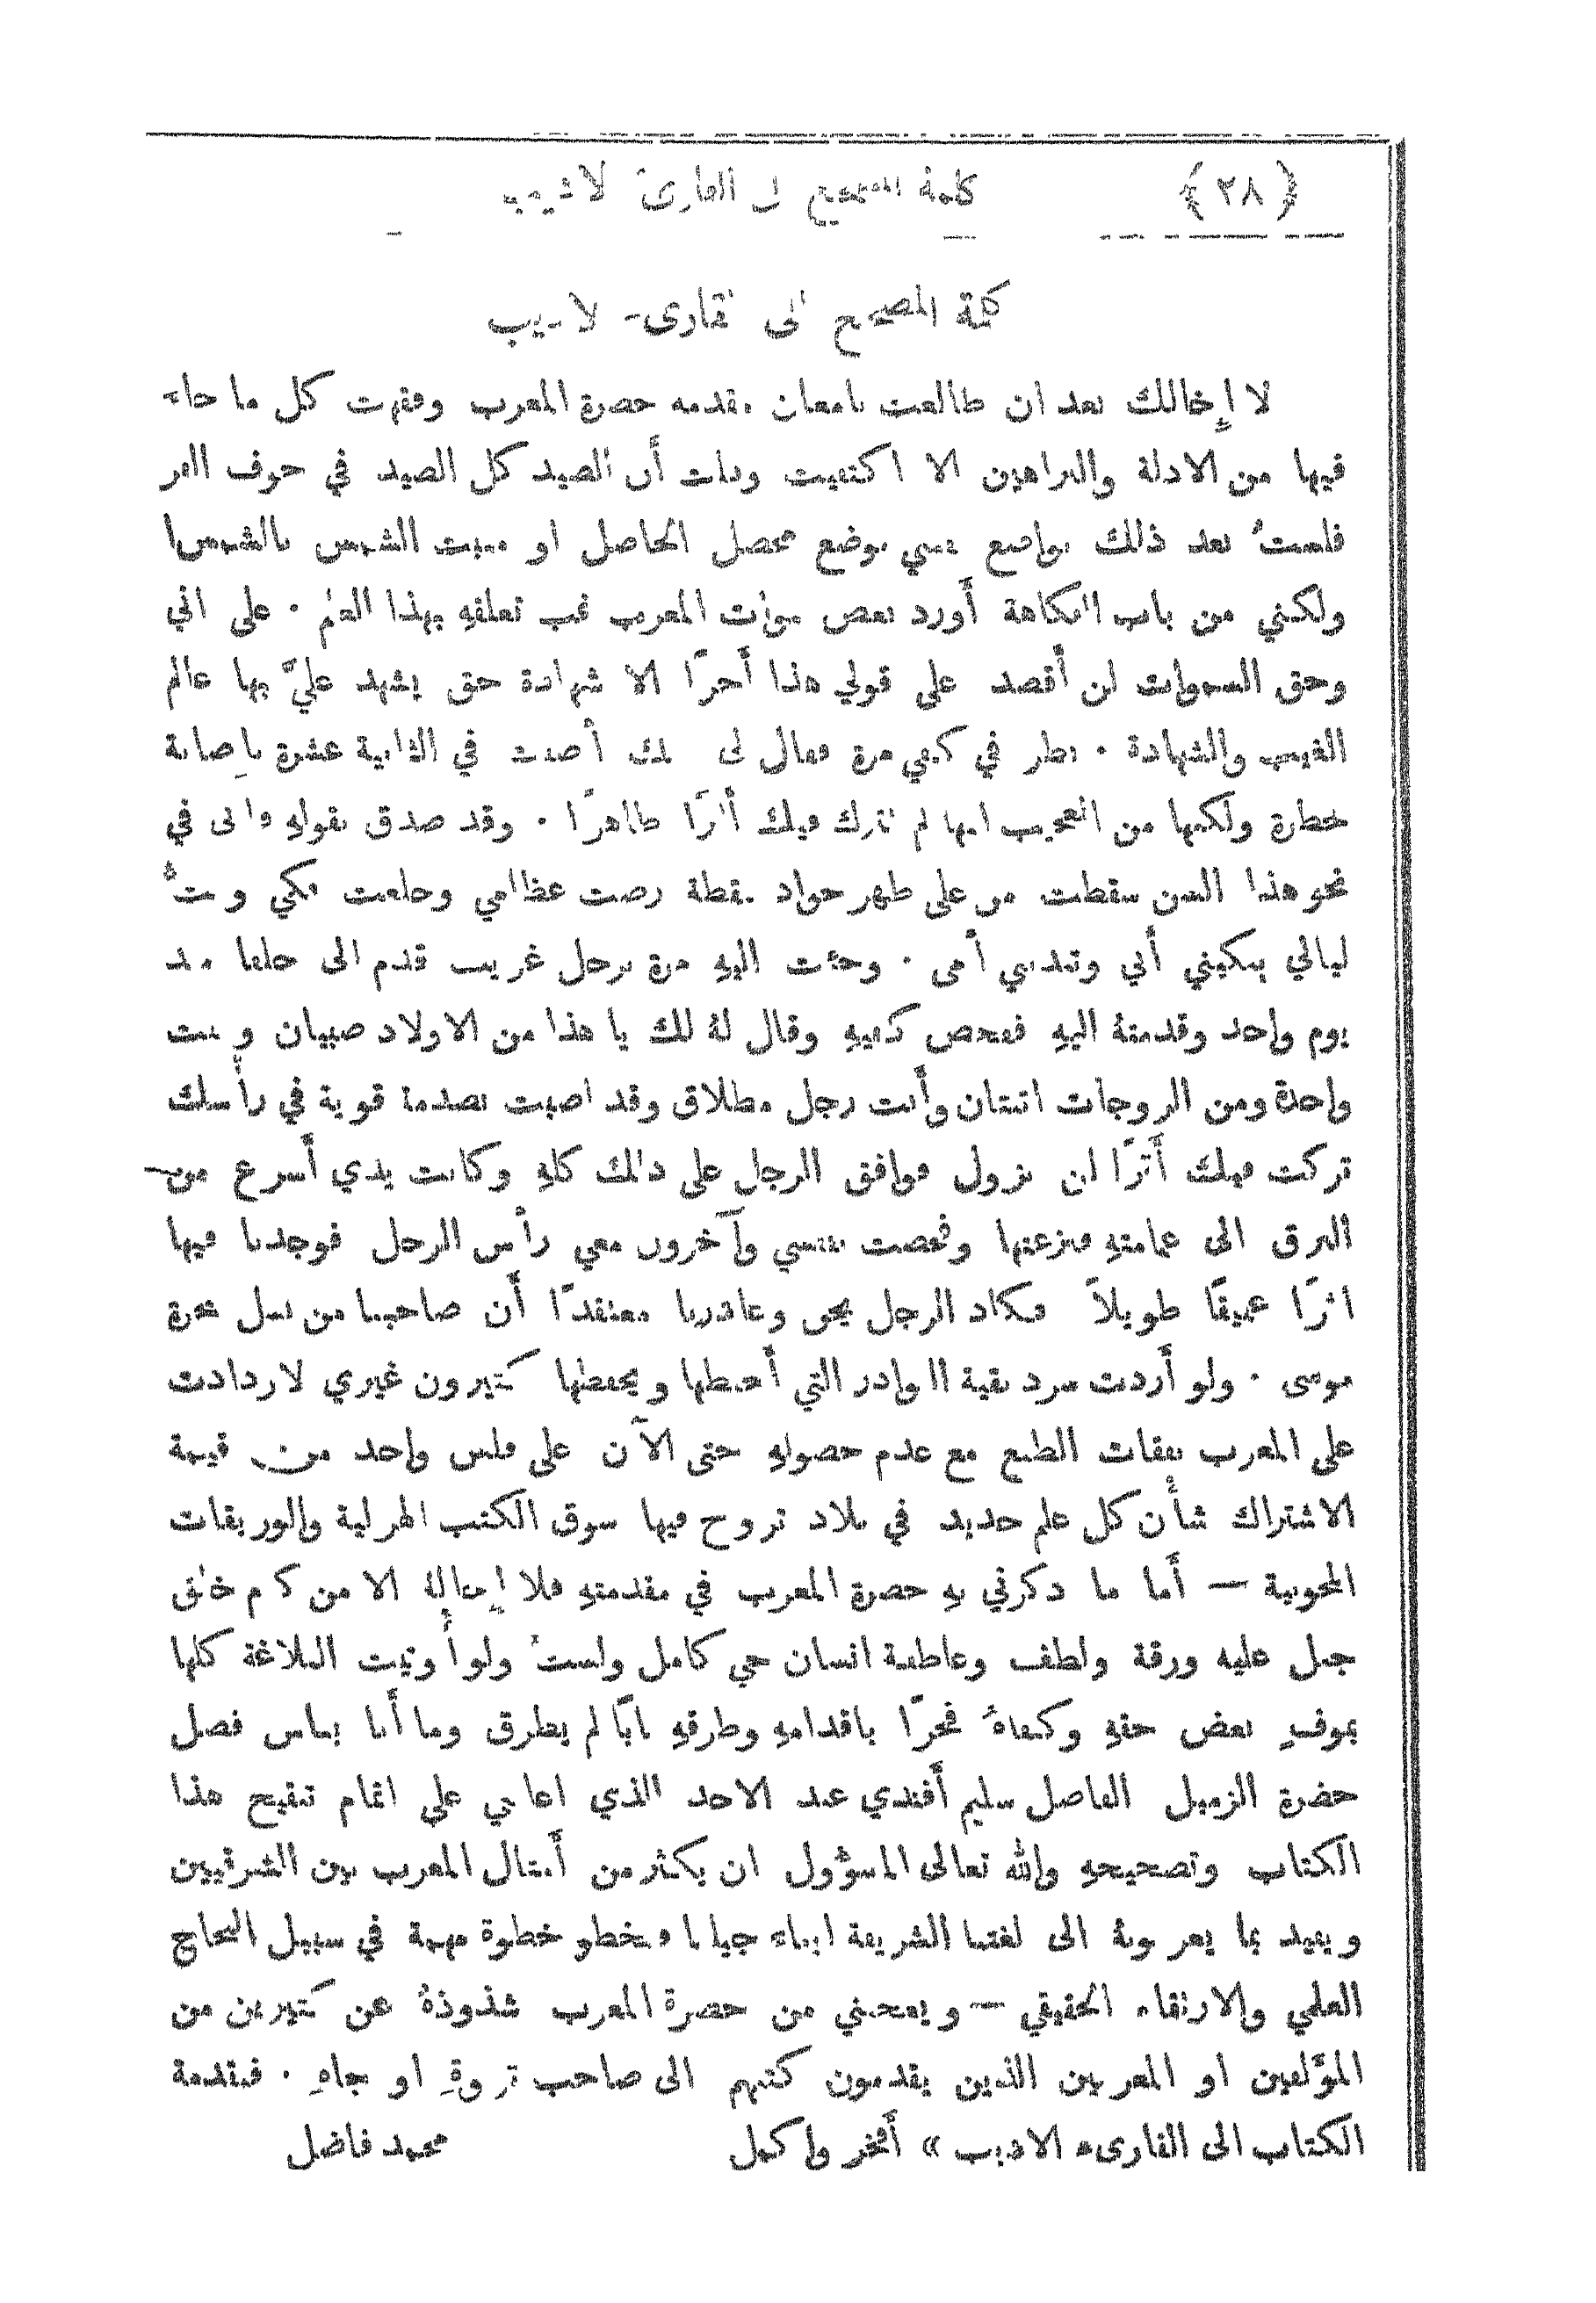 ﴿ ٢٨ ﴾ كلمة المصحح الى القارئ الاديب
كلمة المصحح الى القارىء الاديب
لا إِخالك بعد ان طالعت بامعان مقدمه حضرة المعرب وفقهت كل ما جاء
فيها من الادلة والبراهين الا اكتفيت وقلت أن الصيد كل الصيد في جوف الفر
فلستُ بعد ذلك بواضع نفسي موضع محصل الحاصل او مثبت الشمس بالشمس
ولكنني من باب الفكاهة أورد بعض هبوات المعرب غب تعلقهِ بهذا العلم · على اني
وحق السموات لن أقصد على قولي هذا أجرًا الا شهادة حق يشهد عليَّ بها عالم
الغيب والشهادة · نظر في كفي مرة فقال لى انك أُصبت في الثانية عشرة باصابة
خطرة ولكنها من العجيب انها لم تترك فيك أثرًا ظاهرًا · وقد صدق بقولهِ فانى في
نحو هذا السن سقطت من على ظهر جواد سقطة رضت عظامي وخلعت فكي وبتُّ
ليالي يبكيني أبي وتندبني أمى · وجئت اليهِ مرة برجل غريب قدم الى حلفا منذ
يوم واحد وقدمتهُ اليهِ ففحص كفيهِ وقال لهُ لك يا هذا من الاولاد صبيان وبنت
واحدة ومن الزوجات اثنتان وأنت رجل مطلاق وقد اصبت بصدمة قوية في رأسك
تركت فيك أثرًا لن يزول فوافق الرجل على ذلك كلهِ وكانت يدي أسرع من
البرق الى عمامتهِ فنزعتها وفحصت بنفسي وآخرون معي رأس الرجل فوجدنا فيها
اثرًا عميقًا طويلاً فكاد الرجل يجن وغادرنا معتقدًا أن صاحبنا من نسل سحرة
موسى · ولو أردت سرد بقية النوادر التي أحفظها ويحفظها كثيرون غيري لازدادت
على المعرب نفقات الطبع مع عدم حصولهِ حتى الآن على فلس واحد من قيمة
الاشتراك شأن كل علم جديد في بلاد تروح فيها سوق الكتب الهزلية والوريقات
المجونية — أما ما ذكرني بهِ حضرة المعرب في مقدمتهِ فلا إِخالهُ الا من كرم خلق
جبل عليه ورقة ولطف وعاطفة انسان حي كامل ولستُ ولو أوتيت البلاغة كلها
بموفٍ بعض حقهِ وكفاهُ فخرًا باقدامهِ وطرقهِ بابًا لم يطرق وما أنا بناس فضل
حضرة الزميل الفاضل سليم أفندي عبد الاحد الذي اعانني على اتمام تنقيح هذا
الكتاب وتصحيحهِ والله تعالى المسؤول ان يكثر من أمثال المعرب بين الشرقيين
ويفيد بما يعربونهُ الى لغتنا الشريفة ابناء جيلنا فنخطو خطوة مهمة في سبيل النجاح
العلمي والارتقاء الحقيقي — ويعجبني من حضرة المعرب شذوذهُ عن كثيرين من
المؤلفين او المعربين الذين يقدمون كتبهم الى صاحب ثروةٍ او جاهٍ · فتقدمة
الكتاب الى القارىء الاديب « أفخر واكمل محمد فاضل